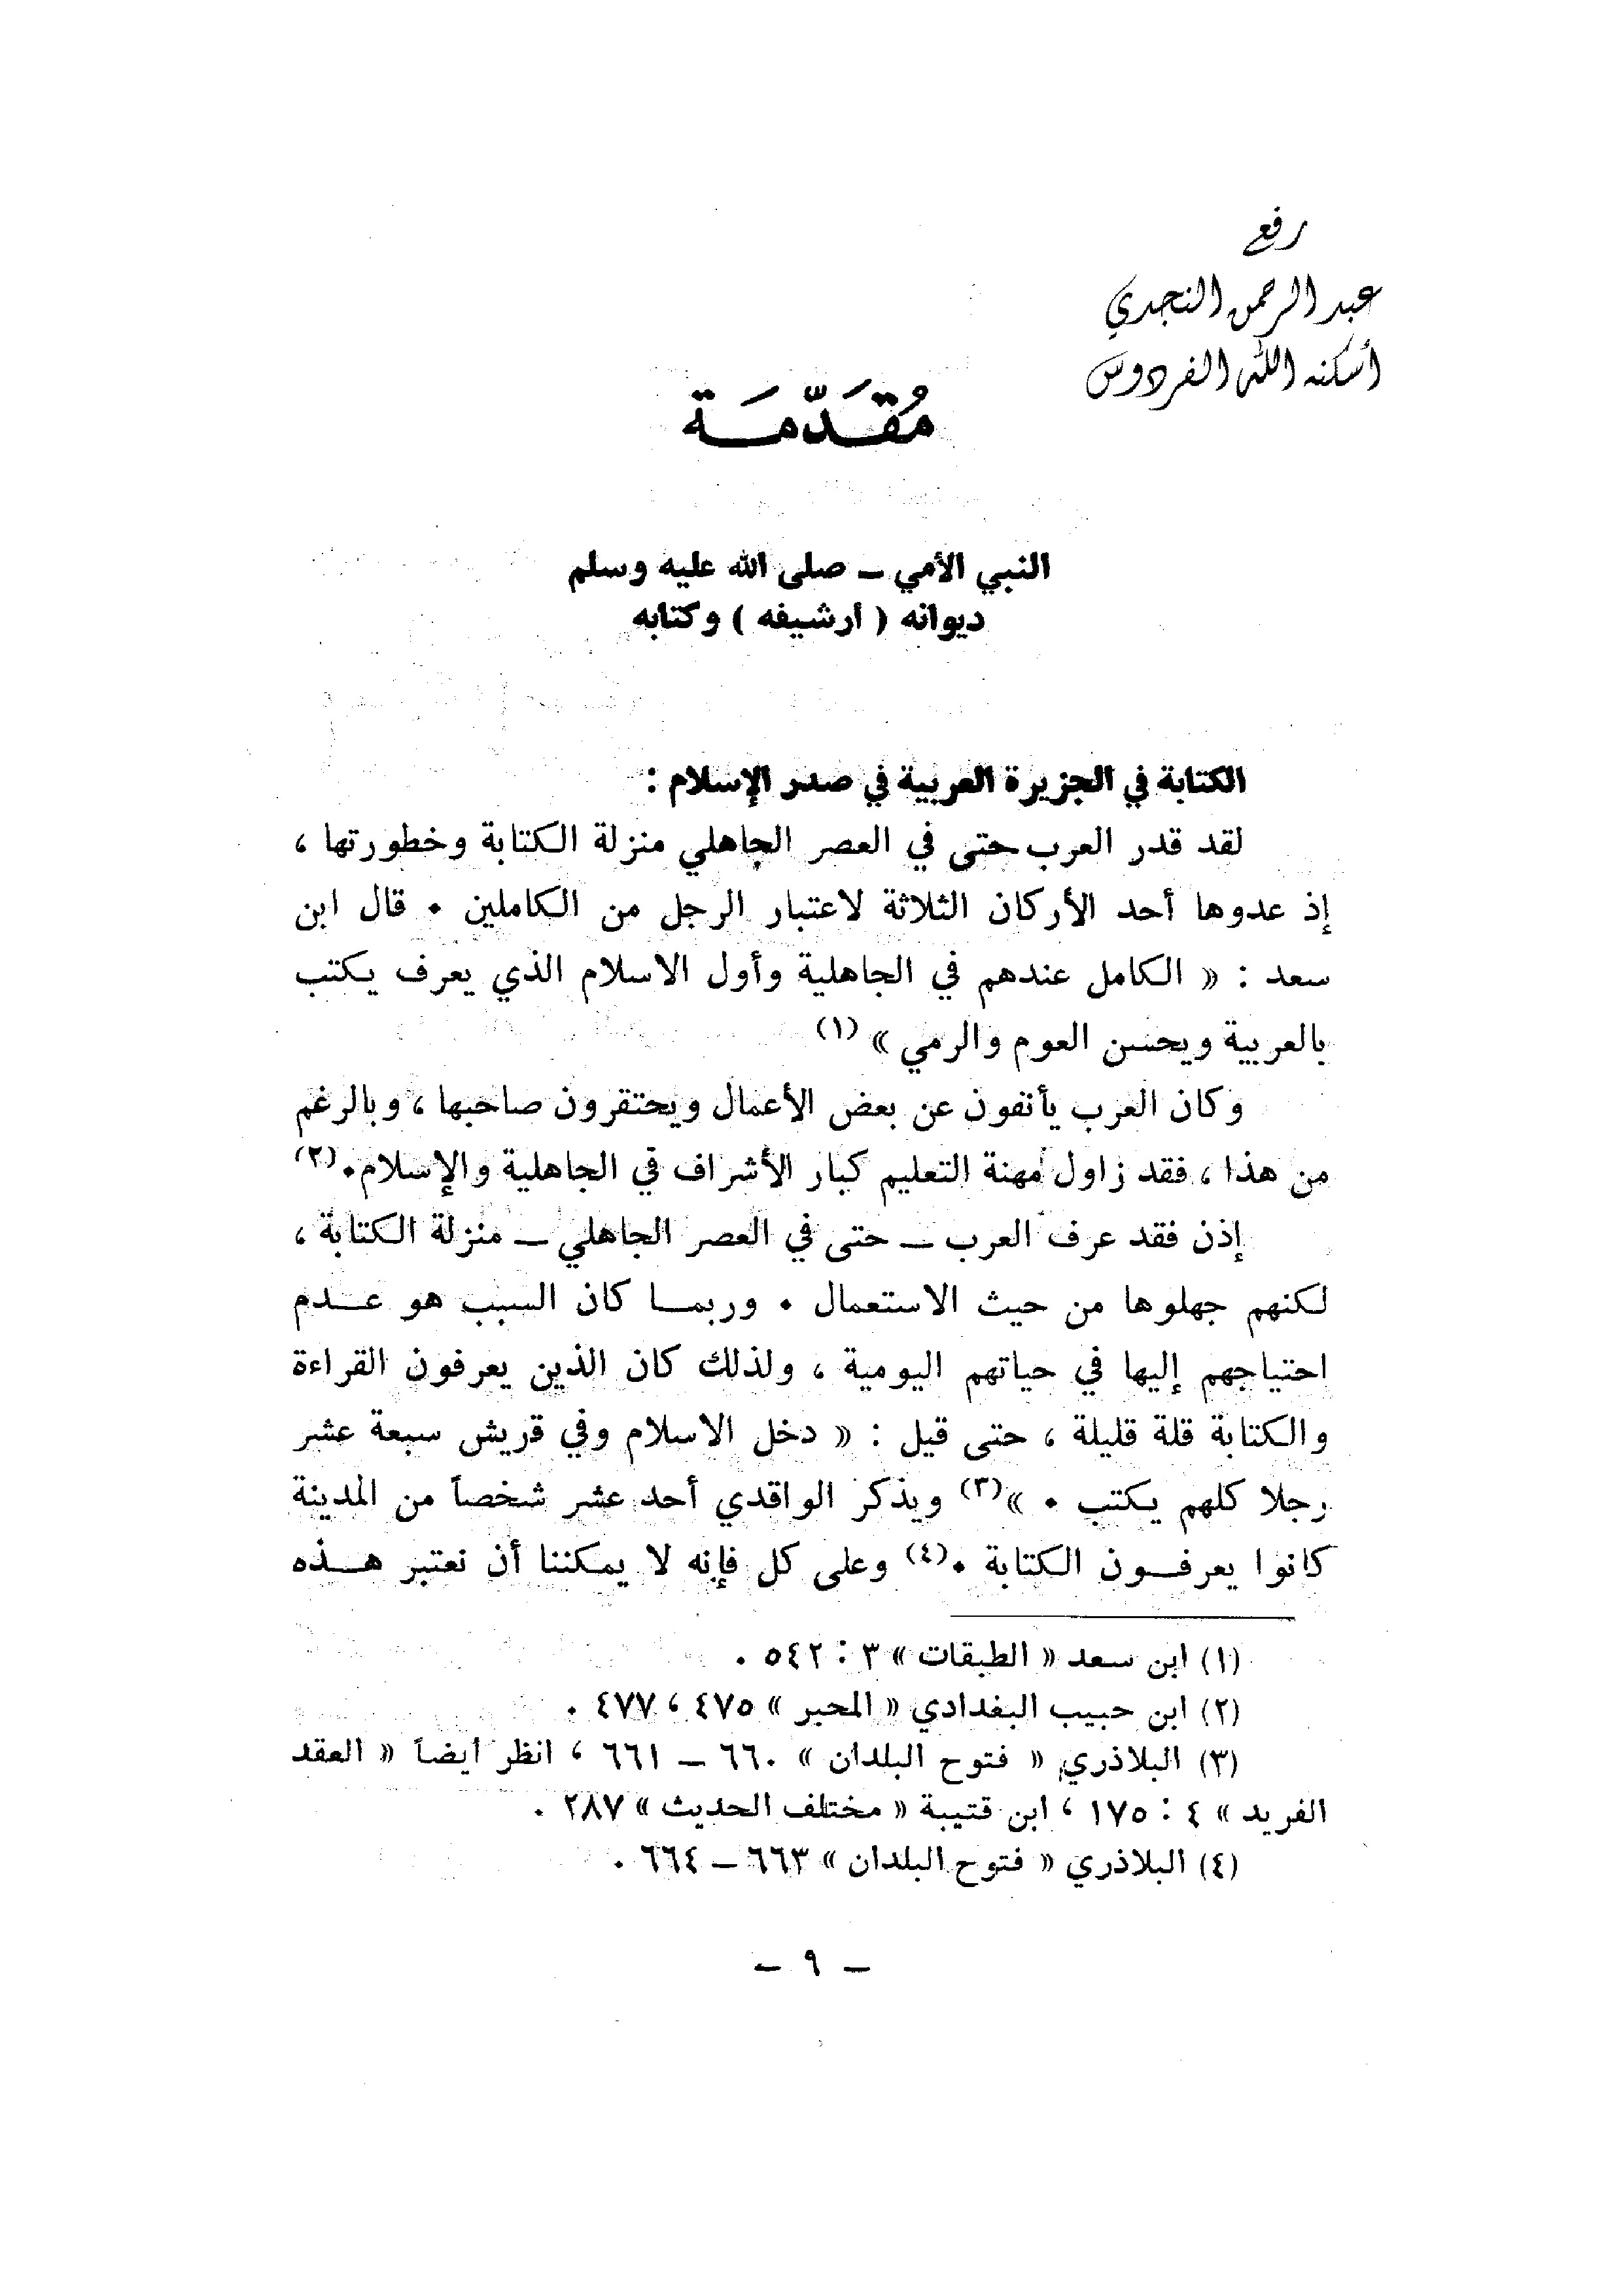 رفع
عبد الرحمن النجدي
أسكنه الله الفردوس
مُقَدّمَة
النبي الأمي ــ صلى الله عليه وسلم
ديوانه ( أرشيفه ) وكتابه
الكتابة في الجزيرة العربية في صدر الإسلام :
لقد قدر العرب حتى في العصر الجاهلي منزلة الكتابة وخطورتها ،
إذ عدوها أحد الأركان الثلاثة لاعتبار الرجل من الكاملين . قال ابن
سعد : « الكامل عندهم في الجاهلية وأول الاسلام الذي يعرف يكتب
بالعربية ويحسن العوم والرمي » (١)
وكان العرب يأنفون عن بعض الأعمال ويحتقرون صاحبها ، وبالرغم
من هذا ، فقد زاول مهنة التعليم كبار الأشراف في الجاهلية والإسلام.(٢)
إذن فقد عرف العرب ــ حتى في العصر الجاهلي ــ منزلة الكتابة ،
لكنهم جهلوها من حيث الاستعمال . وربمـا كان السبب هو عـدم
احتياجهم إليها في حياتهم اليومية ، ولذلك كان الذين يعرفون القراءة
والكتابة قلة قليلة ، حتى قيل : « دخل الاسلام وفي قريش سبعة عشر
رجلا كلهم يكتب . »(٣) ويذكر الواقدي أحد عشر شخصاً من المدينة
كانوا يعرفـون الكتابة .(٤) وعلى كل فإنه لا يمكننا أن نعتبر هـذه
(١) ابن سعد « الطبقات » ٣ : ٥٤٢ .
(٢) ابن حبيب البغدادي « المحبر » ٤٧٥ ، ٤٧٧ .
(٣) البلاذري « فتوح البلدان » ٦٦٠ ــ ٦٦١ ، انظر أيضاً « العقد
الفريد » ٤ : ١٧٥ ، ابن قتيبة « مختلف الحديث » ٢٨٧ .
(٤) البلاذري « فتوح البلدان » ٦٦٣ ــ ٦٦٤ .
ــ ٩ ــ